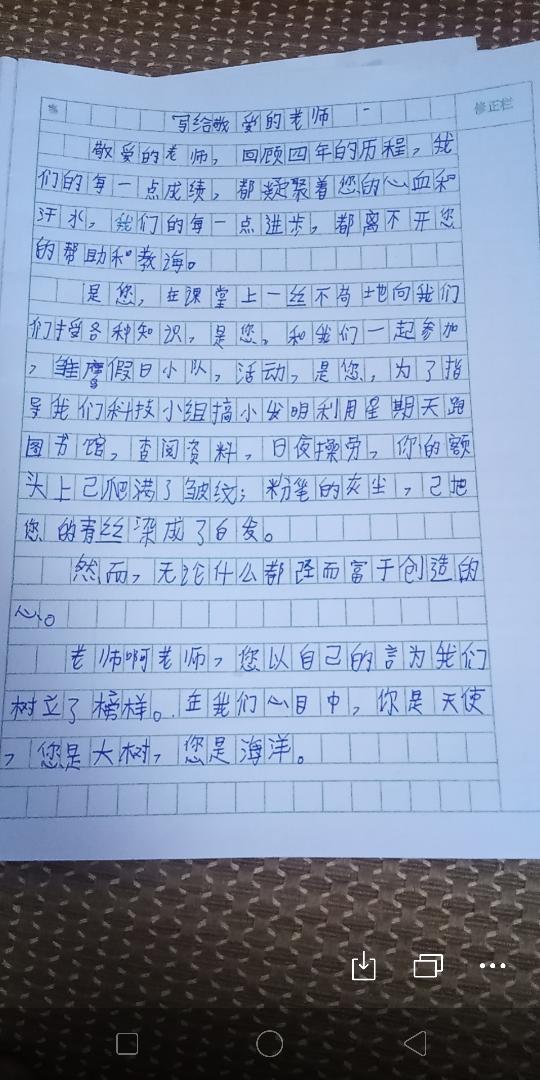 写给敬爱的老师
修正栏
敬爱的老师，回顾四年的历程，我
们的每一点成绩，都凝聚着您的心血和
汗水，我们的每一点进步，都离不开您
的帮助和教海。
是您，在课堂上一丝不苟地向我们
们授各种知识，是您。和我们一起参加
，雏鹰假日小队，活动，是您，为了指
导我们科技小组搞小发明利用星期天跑
图书馆，查阅资料，日夜操劳，你的额
头上已爬满了皱纹；粉笔的灰尘，已把
您的青丝染成了白发。
然而，无论什么都 而富于创造的
心。
老师啊老师，您以自己的言为我们
树立了榜样。在我们心目中，你是天使
，您是大树，您是海洋。